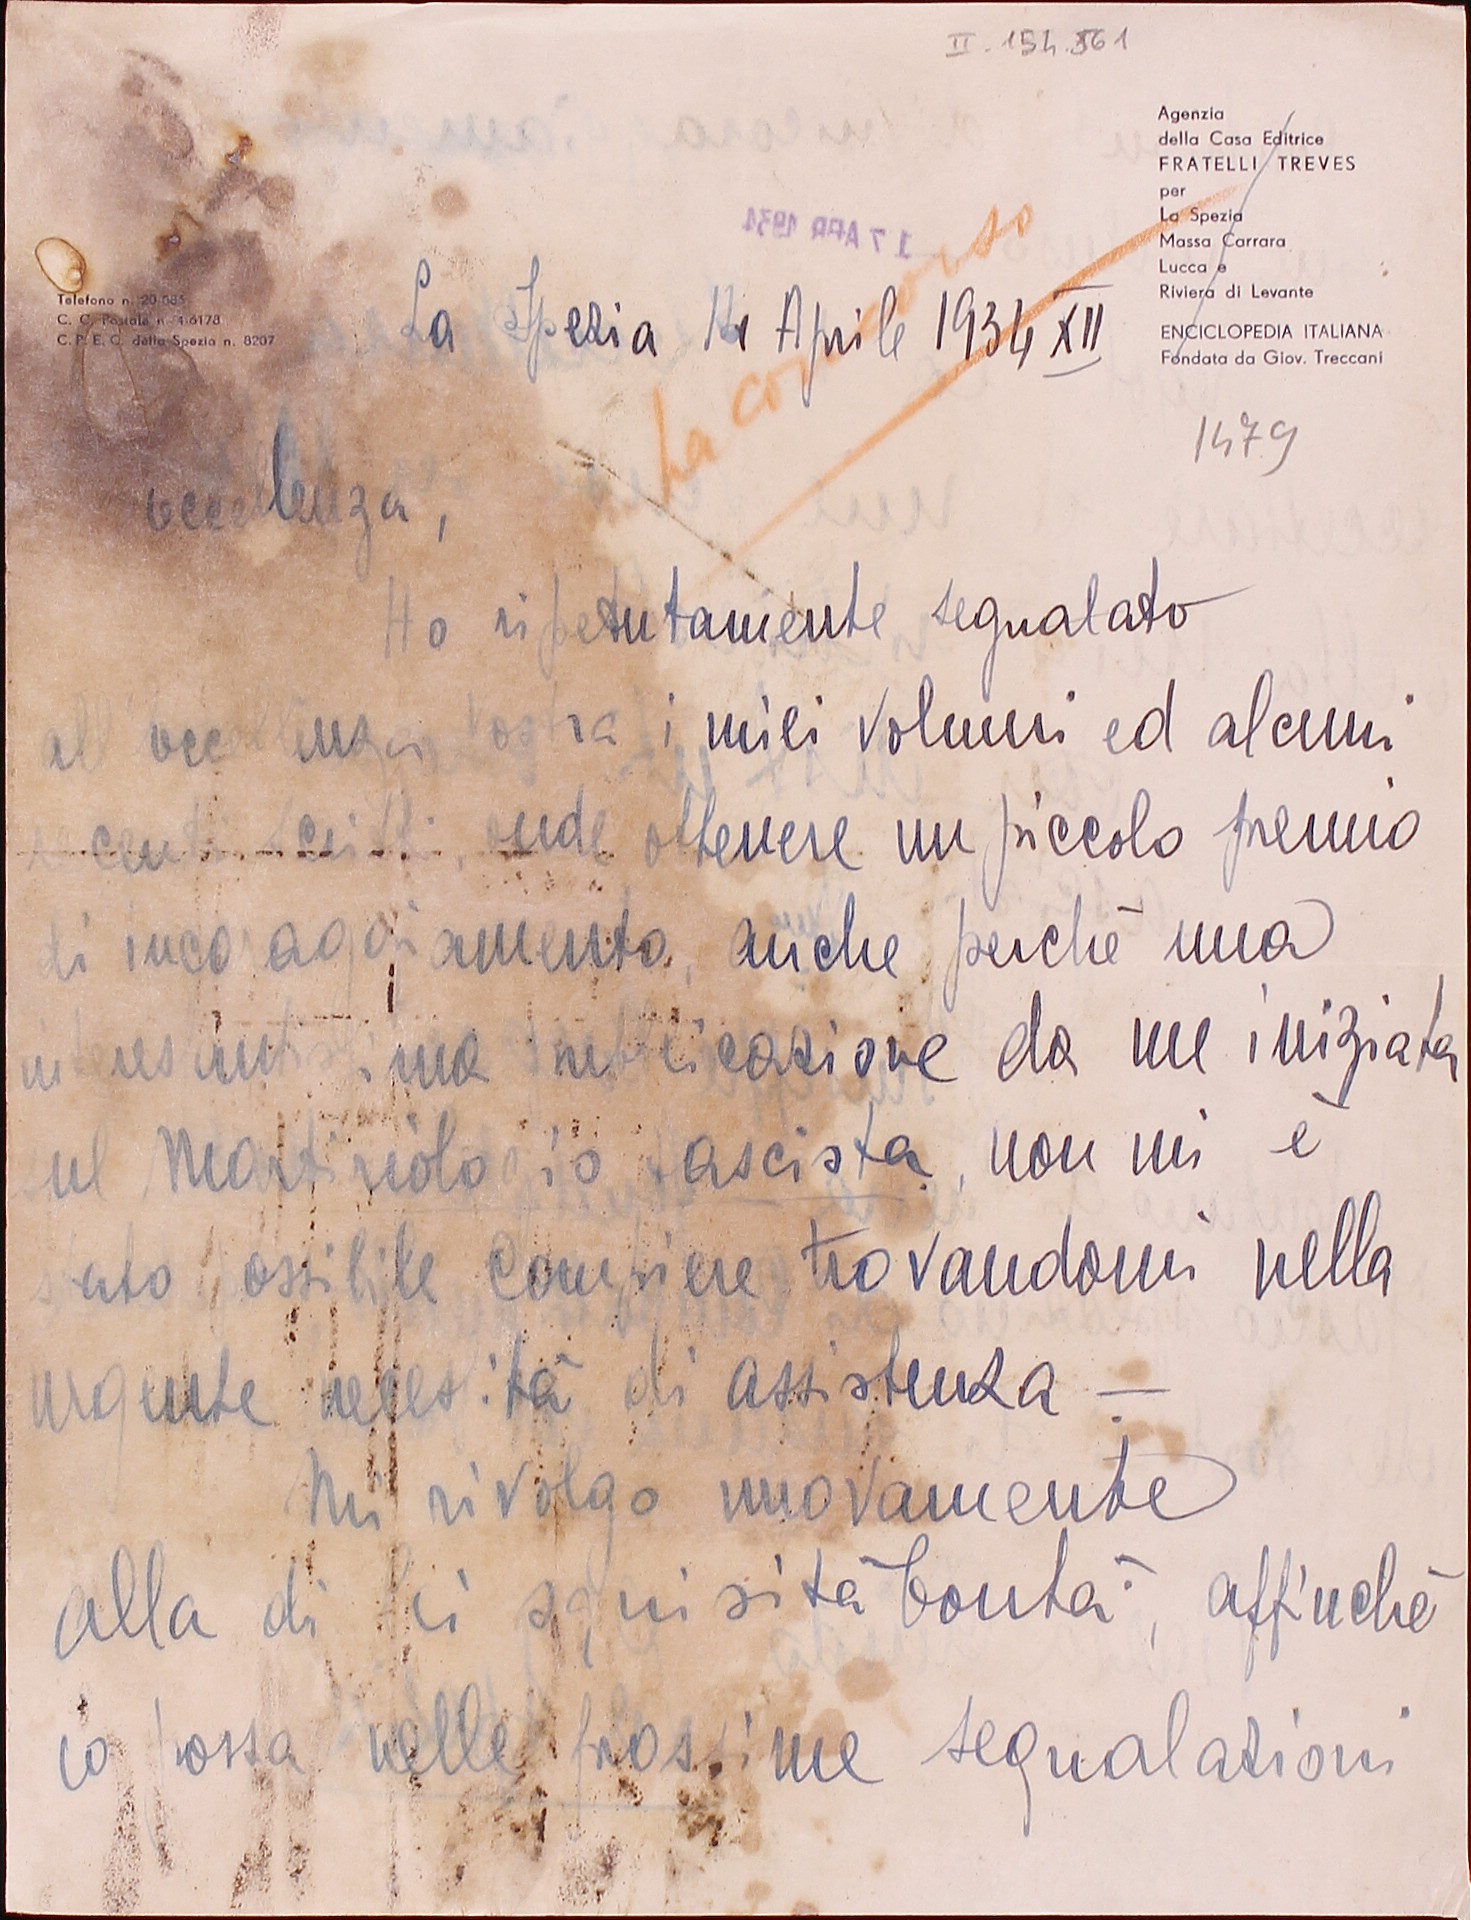 II. 154.361
Agenzia
della Casa Editrice
FRATELLI TREVES
per
La Spezia
Massa Carrara
Lucca e
Riviera di Levante
ENCICLOPEDIA ITALIANA
Fondata da Giov. Treccani
17 APR 1934
Telefono n. 20-585
C. C. Postale n. 4-6178
C. P. E. C. della Spezia n. 8207
La Spezia Aprile 1934 XII
La concorso
1479
eccellenza,
Ho ripetutamente segnalato
all'eccellenza vostra i miei volumi ed alcuni
recenti scritti, onde ottenere un piccolo premio
di incoraggiamento, anche perchè una
interesantissima pubblicazione da me iniziata
sul Martiriologio fascista, non mi è
stato possibile compiere trovandomi nella
urgente necessità di assistenza —
Mi rivolgo nuovamente
alla di lei squisità bontà, affinchè
io possa nelle prossime segnalazioni